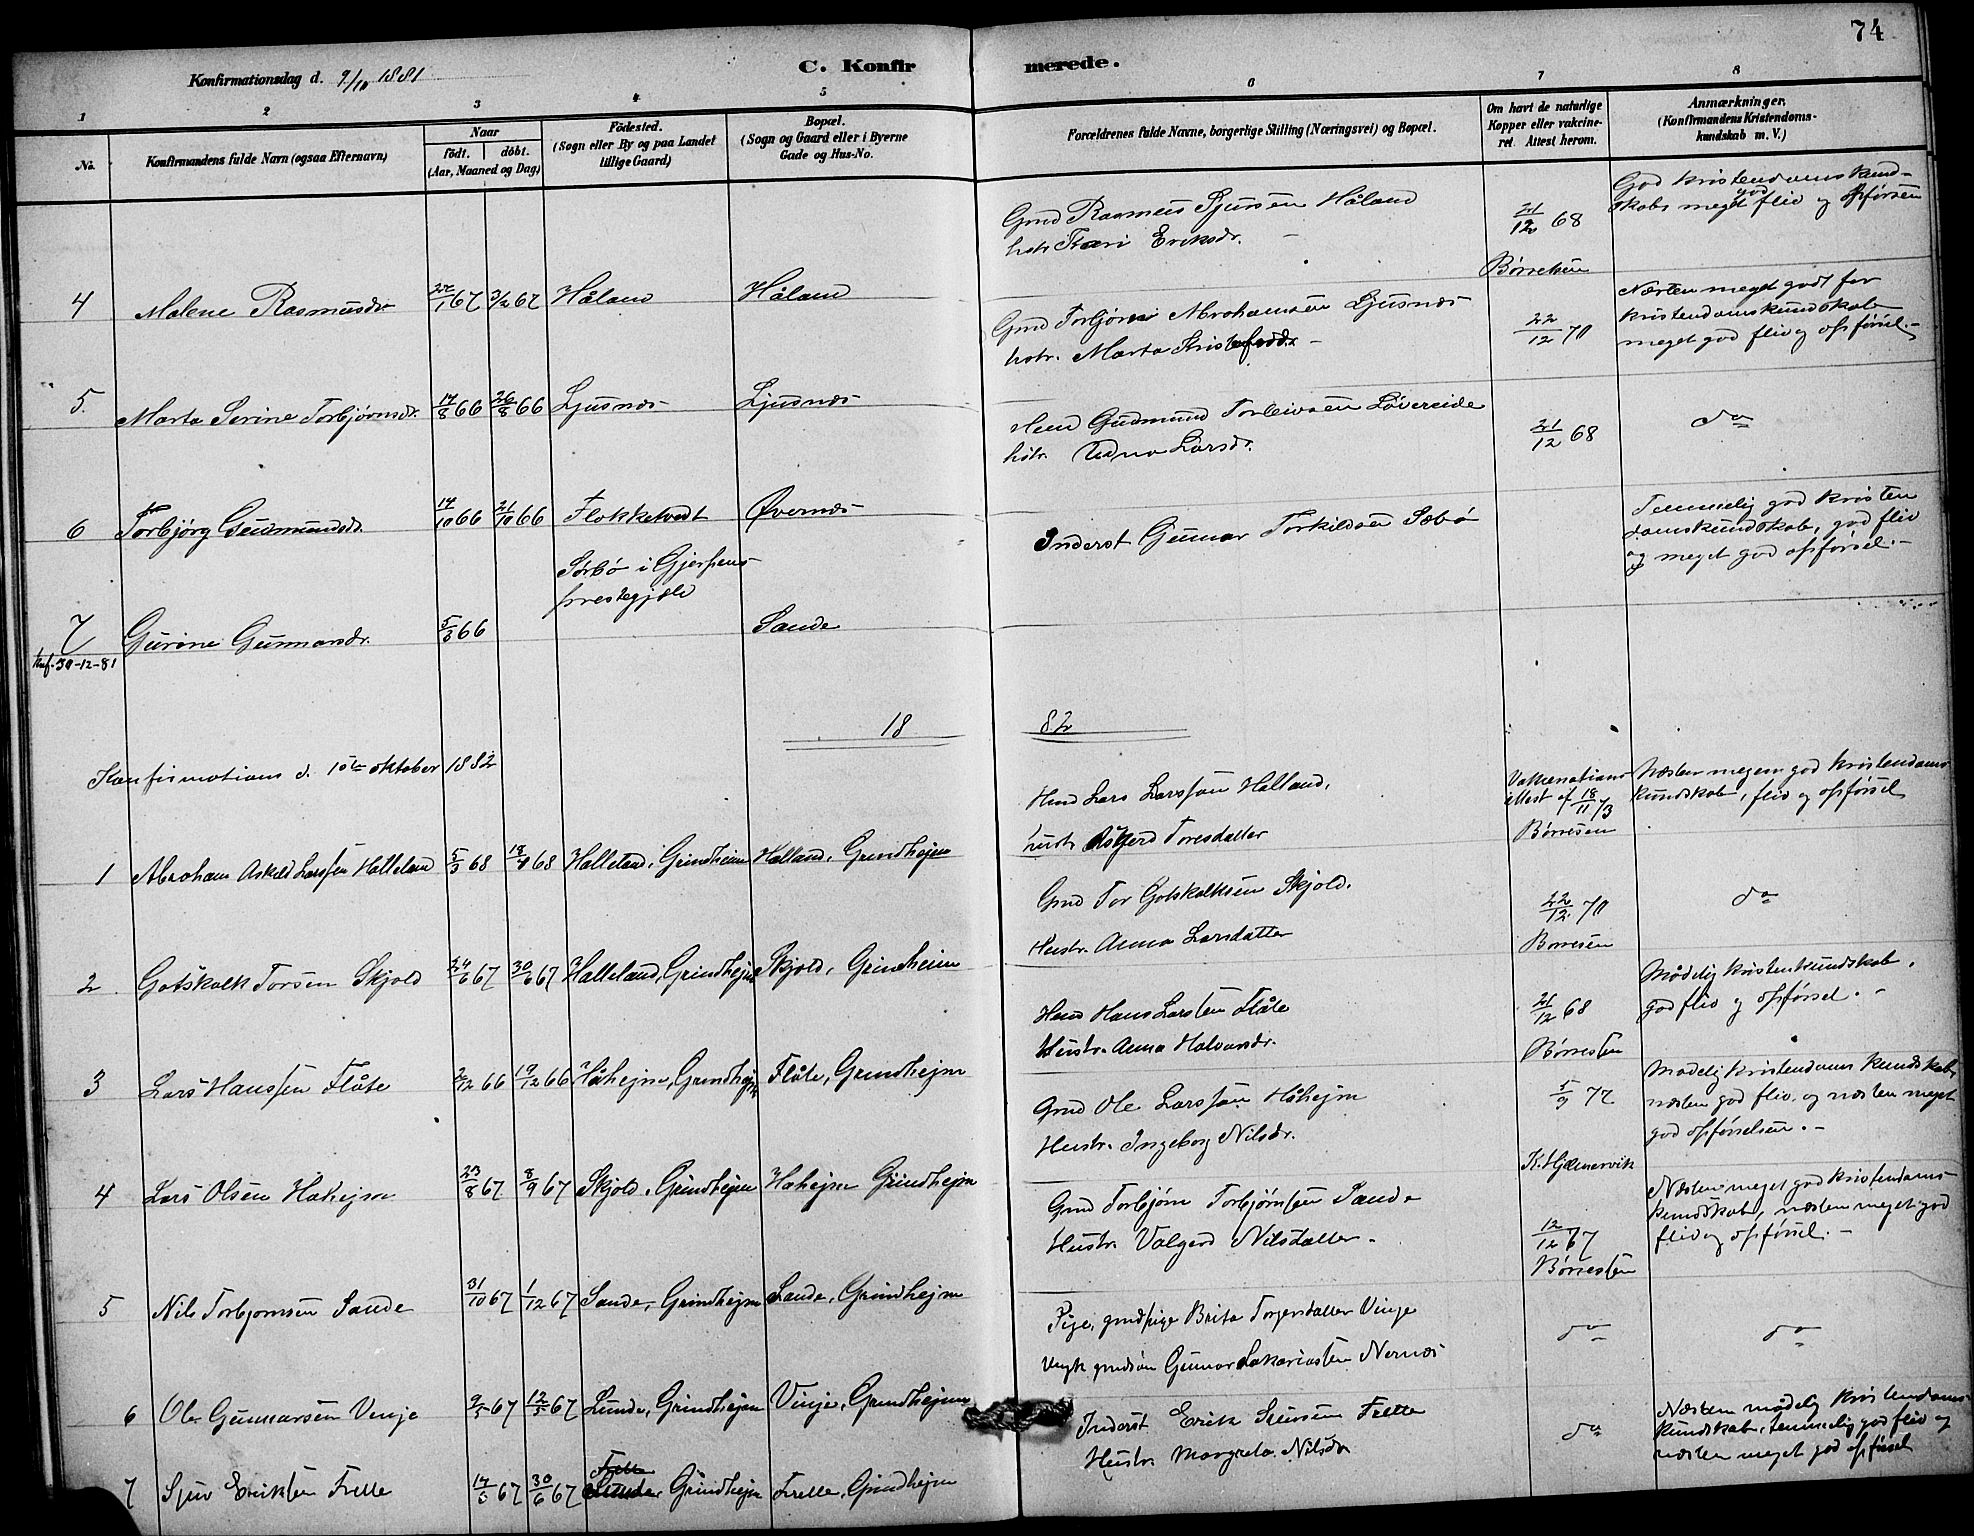 74
Konfirmationsdag d. 9/10 1881
C. Konfirmerede.
1 2 3 4 5 6 7 8
No.
Konfirmandens fulde Navn (ogsaa Efternavn)
Naar
födt. döbt.
(Aar, Maaned og Dag)
Födested.
(Sogn eller By og paa Landet
tillige Gaard)
Bopæl.
(Sogn og Gaard eller i Byerne
Gade og Hus-No.
Forældrenes fulde Navne, borgerlige Stilling (Næringsvei) og Bopæl.
Om havt de naturlige
Kopper eller vakcine-
ret. Attest herom.
Anmærkninger.
(Konfirmandens Kristendoms-
kundskab m. V.)
Gmd Rasmus Sjursen Håland
hstr. Kari Eriksdr.
21/12 68
Børresen
God kristendomskund-
skab meget god fliv og opførsen
4 Malene Rasmusdr 3/2 67 Håland Håland
Gmd Torbjørn Abrahamsen Ljusnes
hstr. Marta Kristofersdr.
22/12 70
Næsten meget godt for
kristendomskundskab
meget god fliv og opførsel.-
5. Marta Serine Torbjørnsdr. 14/8 66 26/8 66 Ljusnes Ljusnes
Gudmund Torleivsen Løvereide
hstr. Udna Larsdr.
21/12 68
do
6 Torbjørg Gudmundsdr. 14/10 66 21/10 66 Flokketvedt Øvernes
Inderst Gunnar Torkildsen Sæbø
Temmelig god kristen
domskundskab, god fliv
og meget god opførsel.-
Sørbø i Gjerpens
prestegjæld
7 Gurine Gunnarsdr. 5/3 66 Sande
Knf. 30-12-81
18 82
Konfirmations d. 1ste oktober 1882
1 Abraham Askild Larssen Halleland 5/3 68 Halleland, Grindheim Halland, Grindhejm
Hmd Lars Larsson Halland,
hustr. Asgjerd Toresdatter
attest af 18/11 73
Børresen
Næsten megen god kristendoms
kundskab, fliv og opførsel
2 Gotskalk Torsen Skjold 24/6 67 30/6 67 Halleland, Grindhejm Skjold, Grindheim
Gmd Tor Gotskalksen Skjold.
Hustr. Anna Larsdatter
22/12 70
Børresen
do
3 Lars Hanssen Flåte 2/12 66 19/12 66 Håhejm, Grindhejm Flåte, Grindhejm
Hmd Hans Larsten Flåte
Hustr. Anna Halvorsdr.
21/12 68
Børresen
Mådelig kristenkundskab,
god fliv og opførsel.-
4 Lars Olsen Håhejm 23/8 67 8/9 67 Skjold, Grindhejm Håhejm Grindhejm
Gmd Ole Larsson Håhejm
Hustr. Ingeborg Nilsdr.
5/9 72
Madelig kristendoms kundskab,
næsten god fliv, og næsten meget
god opførselsen.-
5 Nils Torbjornsen Sande 31/10 67 1/12 67 Sande, Grindhejm Sande, Grindhejm
Gmd Torbjørn Torbjørnsen Sande
Hustr. Valgerd Nilsdatter.
12/12 67
Børresen
Næsten meget god kristendoms-
kundskab, næsten meget god
fliv og opførsel.-
6 Ole Gunnarsen Vinje 9/5 67 12/5 67 Lunde, Grindhejm Vinje, Grindhejm
Pige, gmdpige Brita Torgersdatter Vinje
Ungk. gmdsøn Gunnar Sakariasten Nernes
do
do
7 Sjur Eriksen Frette 30/6 67 Frette Grindhejm Frette, Grindhejm
Inderst Erik Sjursen Frette
Hustr. Margreta Nilsdr
do
Næsten mådelig kristendoms-
kundskab, temmelig god fliv og
næsten meget god opførsel